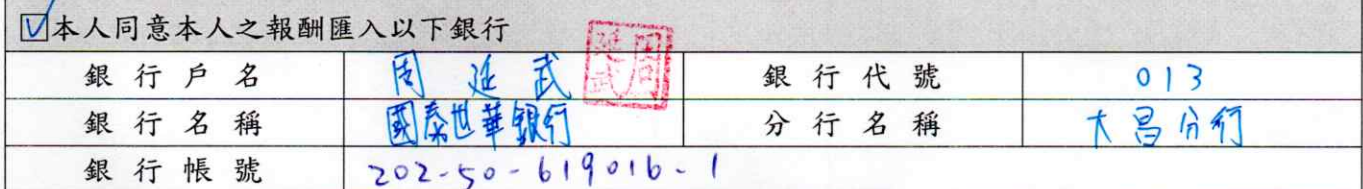 ☑本人同意本人之報酬匯入以下銀行
銀行戶名 周延武 周延武 銀行代號 013
銀行名稱 國泰世華銀行 分行名稱 大昌分行
銀行帳號 202-50-619016-1